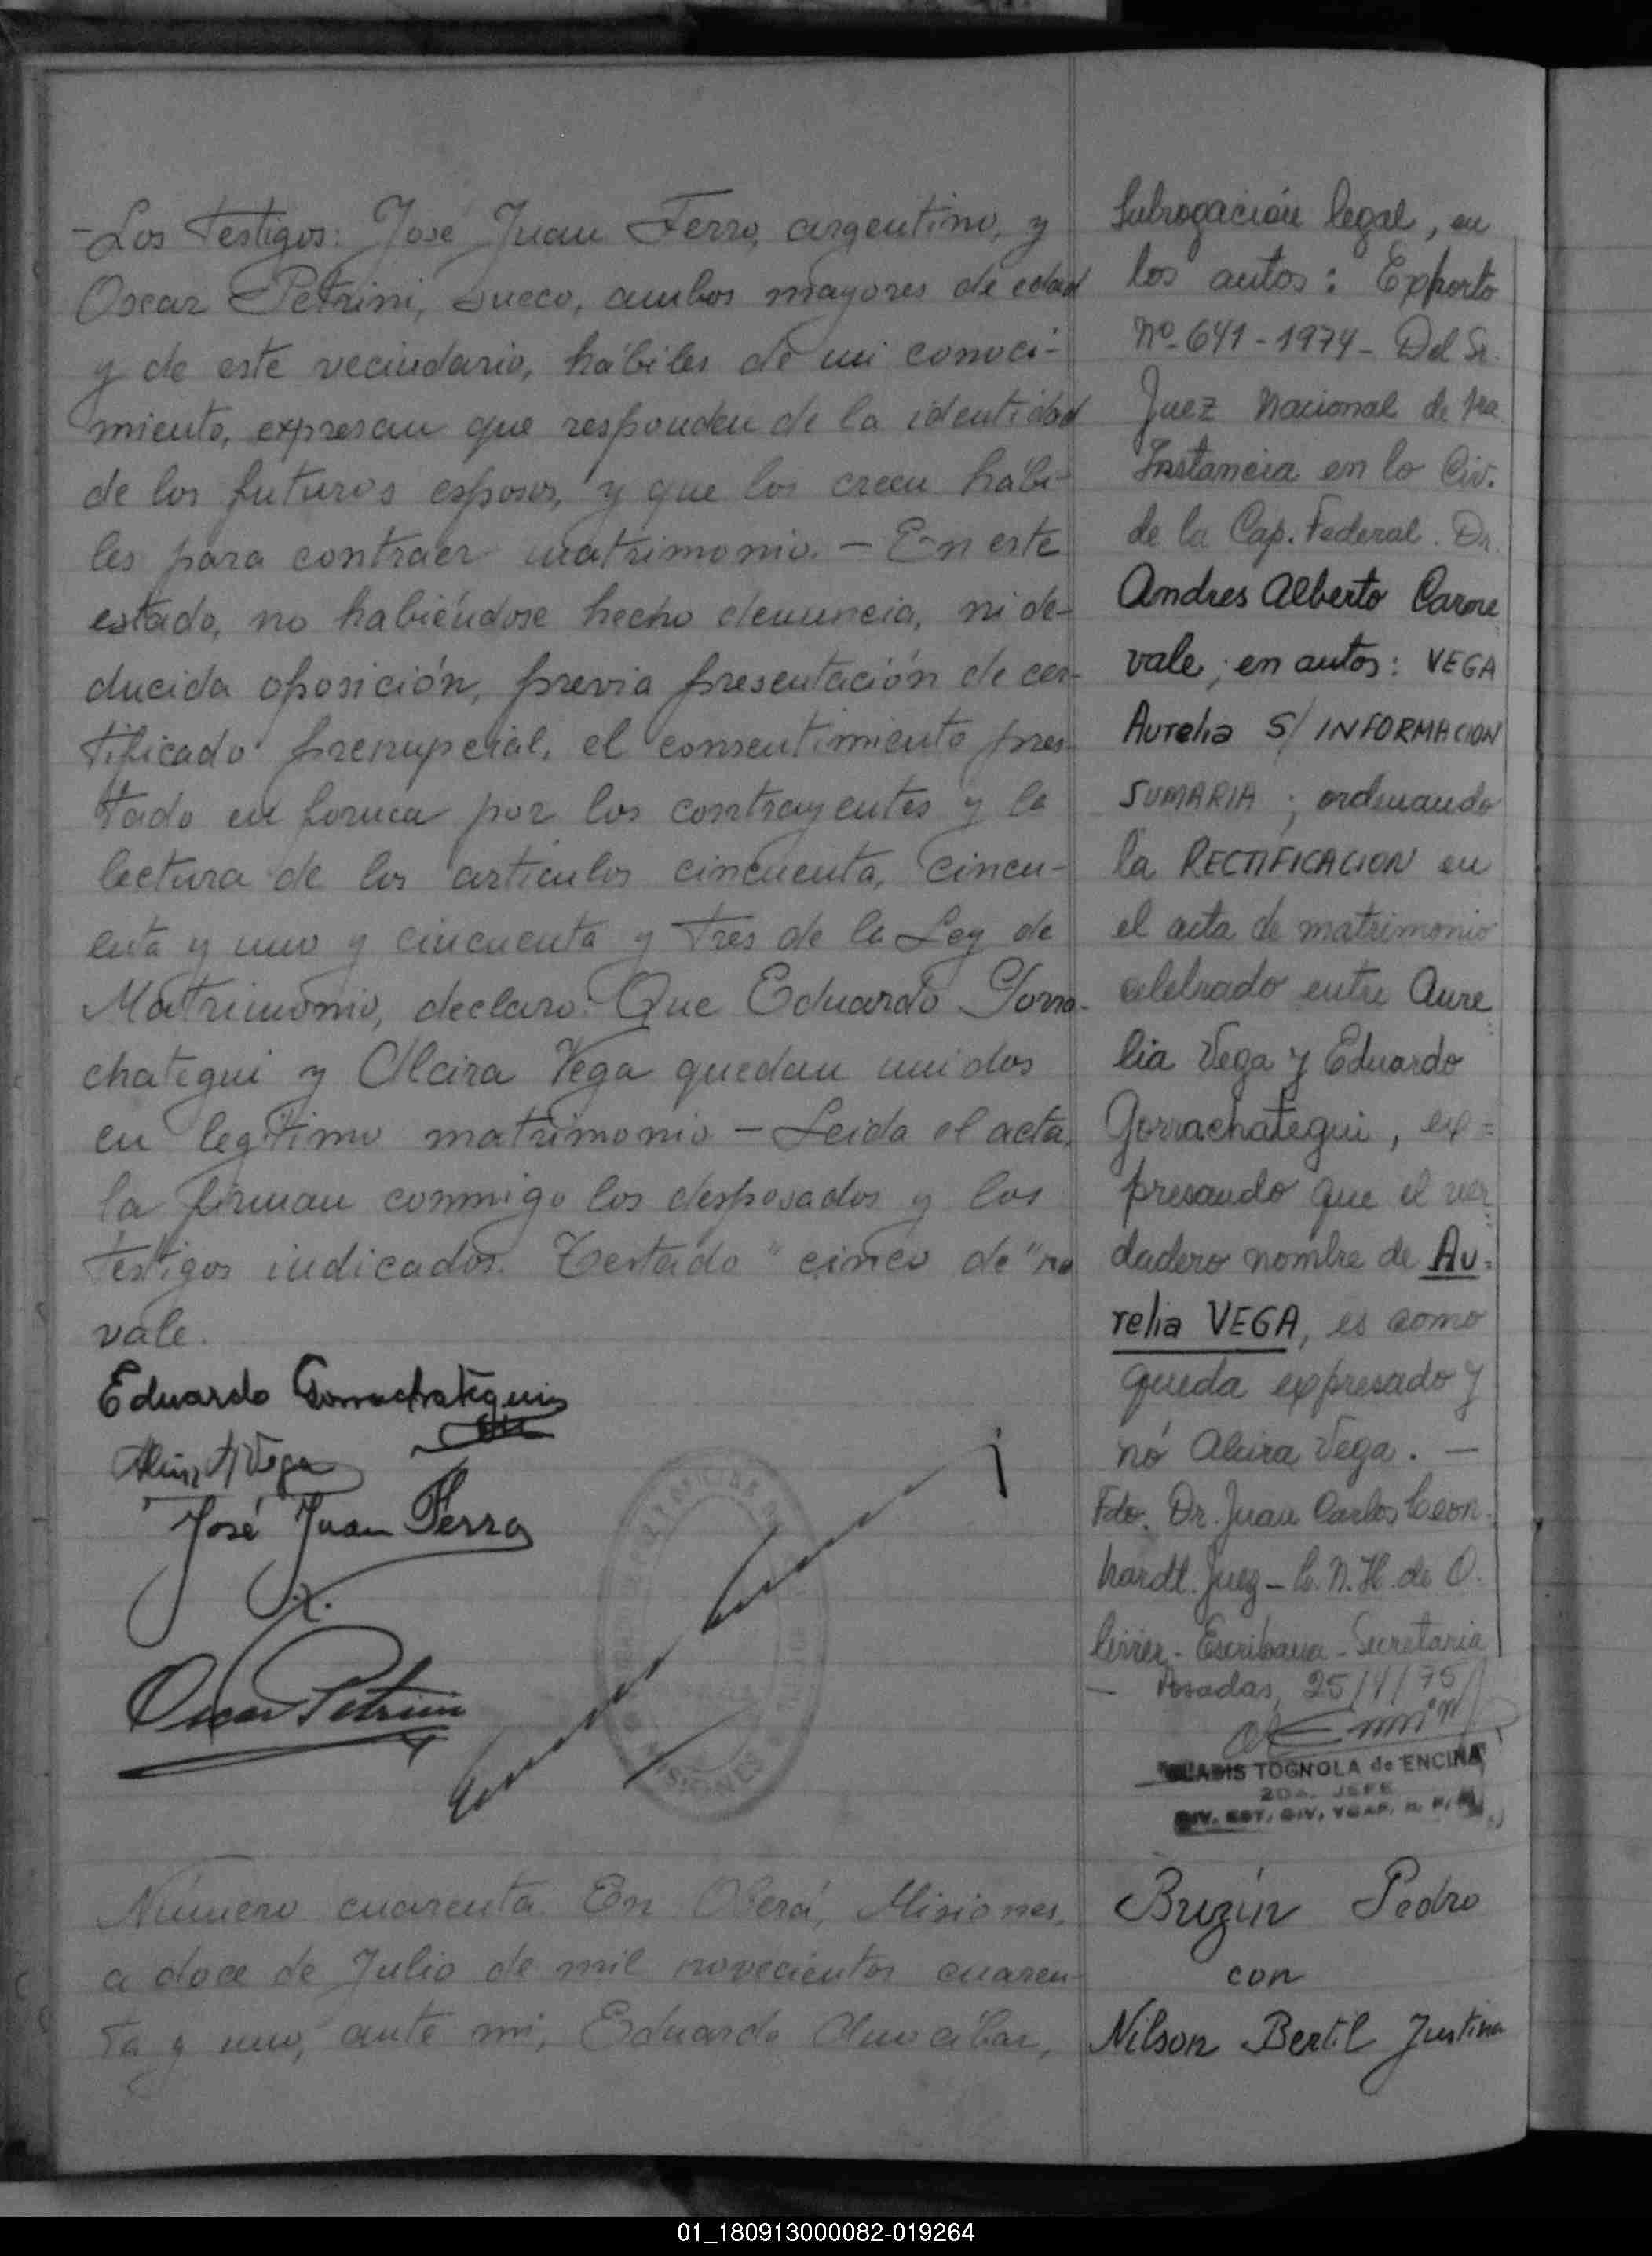 -Los testigos: José Juan Ferro, argentino, y
Oscar Petrini, sueco, ambos mayores de edad
y de este vecindario, hábiles de mi conoci-
miento, expresan que responden de la identidad
de los futuros esposos, y que los creen hábi-
les para contraer matrimonio. - En este
estado, no habiéndose hecho denuncia, ni de-
ducida oposición, previa presentación de cer-
tificado prenupcial, el consentimiento pres-
tado en forma por los contrayentes y la
lectura de los artículos cincuenta, cincu-
enta y uno y cincuenta y tres de la Ley de
Matrimonio, declaro: Que Eduardo Gorra-
chategui y Alcira Vega quedan unidos
en legítimo matrimonio - Leida el acta,
la firman conmigo los desposados y los
testigos indicados. Testado "cinco de" no
vale.
Eduardo Gorrachategui
Vega
José Juan Ferro
Oscar Petrini
MISIONES
Número cuarenta. En Oberá, Misiones,
a doce de Julio de mil novecientos cuaren-
ta y uno, ante mi, Eduardo
Subrogación legal, en
los autos: Exphorto
Nº-641-1974- Del Sr.
Juez Nacional de 1ra
Instancia en lo Civ.
de la Cap. Federal. Dr.
Andres Alberto Carne
vale, en autos: VEGA
Aurelia S/ INFORMACION
SUMARIA; ordenando
la RECTIFICACION en
el acta de matrimonio
celebrado entre Aure
lia Vega y Eduardo
Gorrachategui, ex=
presando que el ver
dadero nombre de Au=
relia VEGA, es como
queda expresado y
nó Alcira Vega. -
Fdo. Dr. Juan Carlos Leon.
hardt. Juez - N. H. de O.
Escribana - Secretaria
- Posadas, 25/4/75
GLADIS TOGNOLA de ENCINA
2DA. JEFE
Buzín Pedro
con
Nilson Bertil Justina
01_180913000082-019264